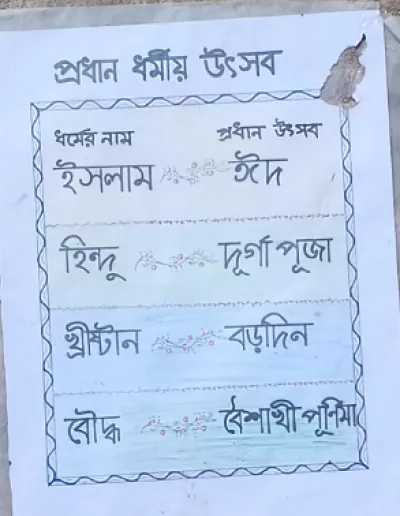 প্রধান ধর্মীয় উৎসব
ধর্মের নাম প্রধান উৎসব
ইসলাম ঈদ
হিন্দু দূর্গা পূজা
খ্রীষ্টান বড়দিন
বৌদ্ধ বৈশাখী পূর্ণিমা